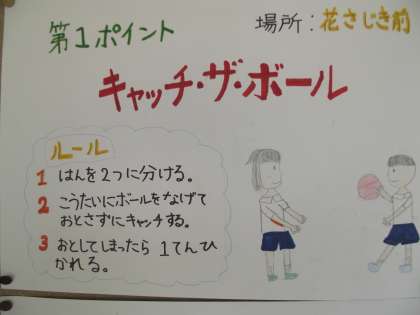 第1ポイント
場所:花さじき前
キャッチ・ザ・ボール
ルール
1 はんを2つに分ける。
2 こうたいにボールをなげて
おとさずにキャッチする。
3 おとしてしまったら 1てんひ
かれる。